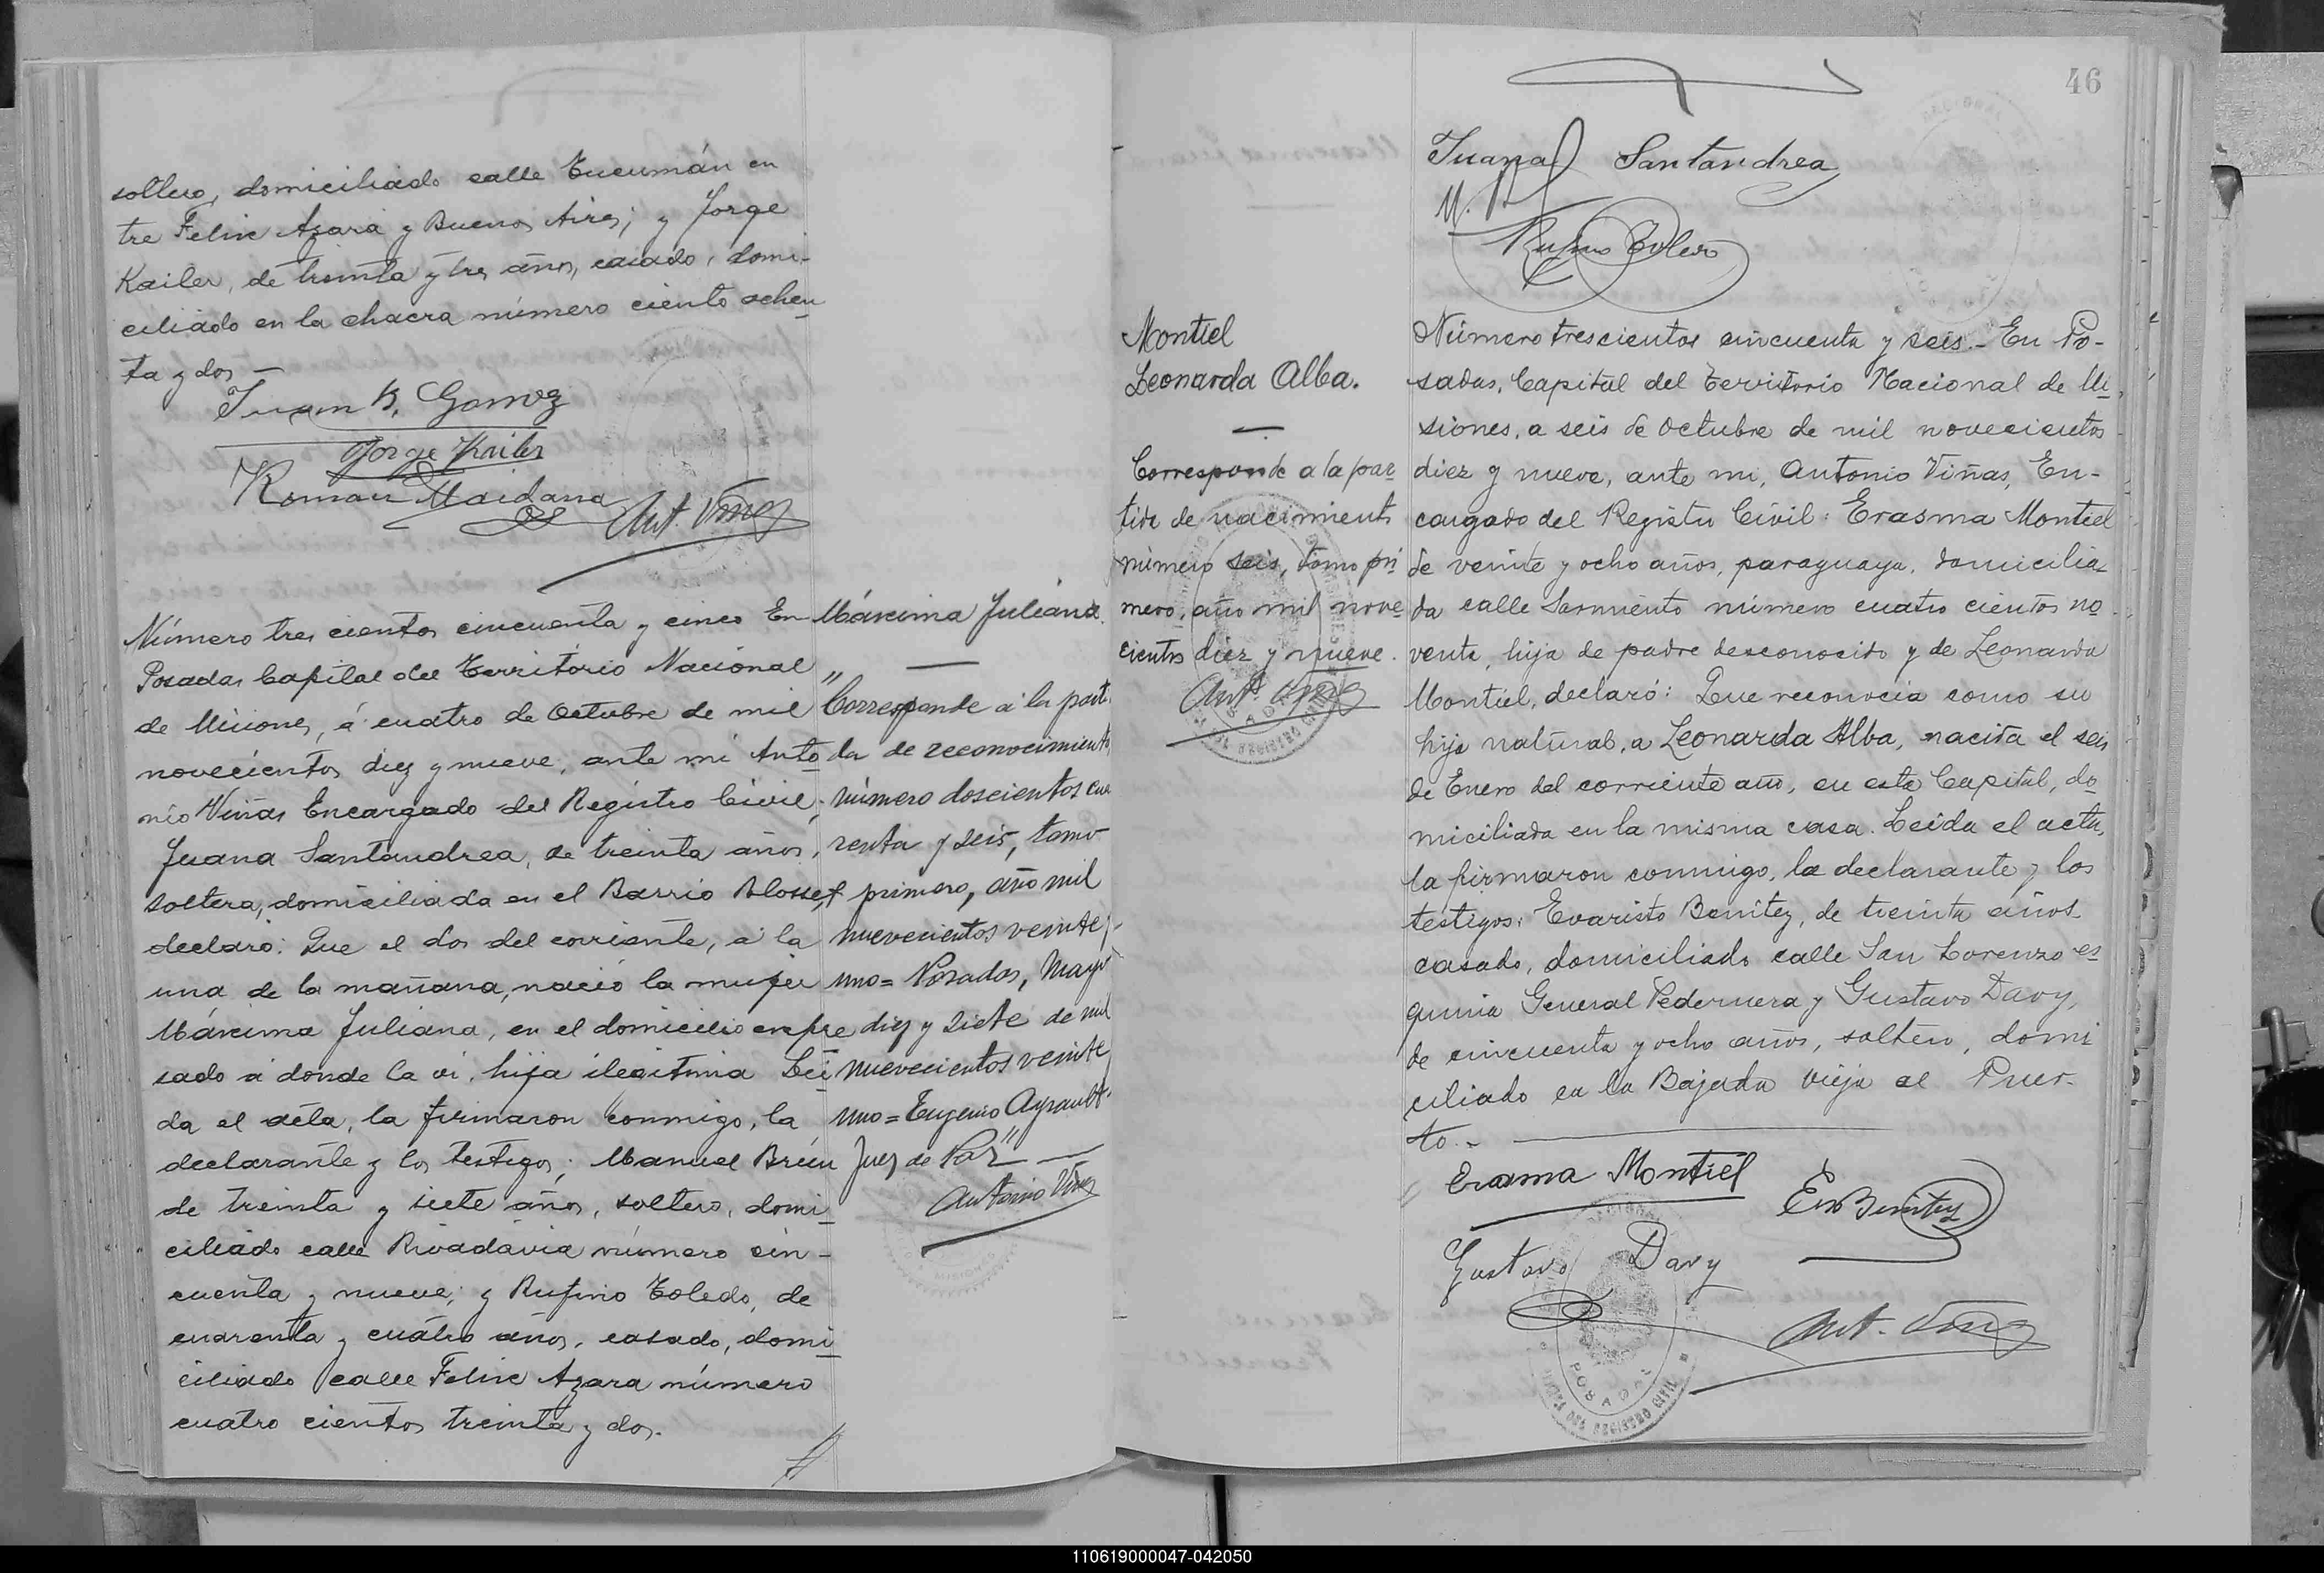 soltero, domiciliado calle Tucumán en
tre Felix Azara y Buenos Aires; y Jorge
Kailer, de treinta y tres años, casado, domi-
ciliado en la chacra número ciento ochen
ta y dos —
Juan B. Gomez
Jorge Kailer
Roman Maidana
Ant. Viñas
Número tres cientos cincuenta y cinco En
Posadas Capital del Territorio Nacional
de Misiones, á cuatro de Octubre de mil
novecientos diez y nueve, ante mi Anto
nio Viñas Encargado del Registro Civil;
Juana Santandrea, de treinta años,
soltera, domiciliada en el Barrio Blosset
declaró: Que el dos del corriente, á la
una de la mañana, nació la mujer
Máxima Juliana, en el domicilio expre
sado á donde la vi, hija ilegitima Lei
da el acta, la firmaron conmigo, la
declarante y los testigos; Manuel Breiu
de treinta y siete años, soltero, domi
ciliado calle Rivadavia número sin-
cuenta y nueve; y Rufino Toledo, de
cuarenta y cuatro años, casado, domi
ciliado calle Felix Azara número
cuatro cientos treinta y dos.
Máxima Juliana.
"Corresponde á la parti
da de reconocimiento
número doscientos cua
renta y seis, tomo
primero, año mil
nuevecientos veinte y
uno = Posadas, Mayo
diez y siete de mil
nuevecientos veinte
uno = Eugenio Ayrault
Juez de Paz" —
Antonio Viñas
46
Juana Santandrea
Rufino Toledo
Montiel
Leonarda Alba.
Corresponde a la par
tida de nacimiento
número seis, tomo pri
mero, año mil nove
cientos diez y nueve.
Ant. Viñas
Número trescientos cincuenta y seis.- En Po-
sadas, Capital del Territorio Nacional de Mi
siones, a seis de Octubre de mil novecientos
diez y nueve, ante mi, Antonio Viñas, En-
cargado del Registro Civil: Erasma Montiel
de veinte y ocho años, paraguaya, domicilia
da calle Sarmiento número cuatro cientos no
venta, hija de padre desconocido y de Leonarda
Montiel, declaró: Que reconocia como su
hija natural, a Leonarda Alba, nacida el seis
de Enero del corriente año, en esta Capital, do
miciliada en la misma casa. Leida el acta,
la firmaron conmigo, la declarante y los
testigos: Evaristo Benitez, de treinta años
casado, domiciliado calle San Lorenzo es
quina General Pedernera y Gustavo Davy,
de cincuenta y ocho años, soltero, domi
ciliado en la Bajada vieja al Puer-
to.-
Erasma Montiel
Ev Benitez
Gustavo Davy
Ant. Viñas
POSADAS
DEL REGISTRO CIVIL
110619000047-042050